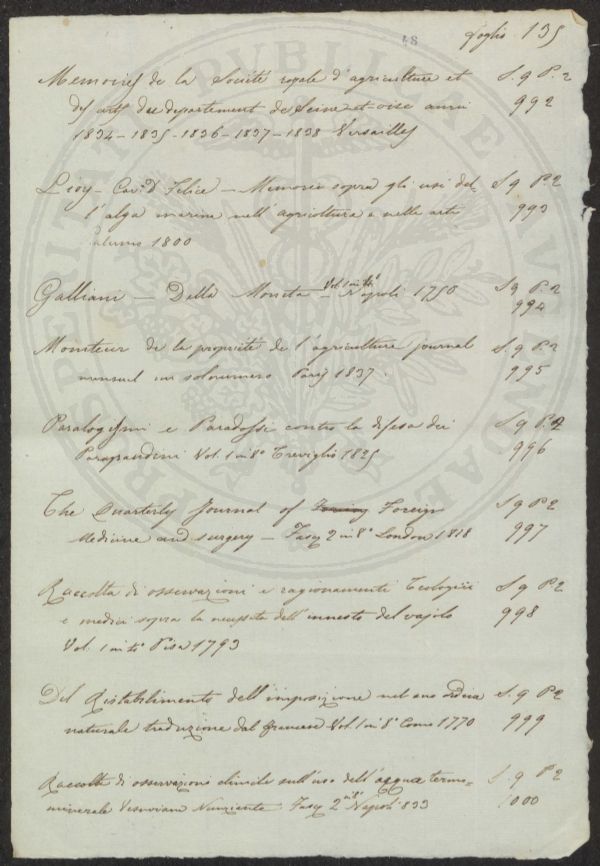 48
foglio 135
Memoires de la Société royale d'agriculture et S. 9 P. 2
des arts du departement de Seine et oise anni 992
1834 - 1835 - 1836 - 1837 - 1838 Versailles
Lioy - Cav.r D. Felice - Memoria sopra gli usi del- S. 9 P. 2
l'alga marina nell'agricoltura e nelle arti 993
1800
Galliani - Della Moneta - Vol. 1 in 4° Napoli 1750 S. 9 P. 2
994
Moniteur de la propriété de l'agriculture journal S. 9 P. 2
mensuel un sol numero Paris 1837. 995
Paralogismi e Paradossi contro la difesa dei S. 9 P. 2
Paragrandini Vol. 1 in 8° Treviglio 1825 996
The Quarterly Journal of Foreign S. 9 P. 2
Medicine and surgery - Fasc. 2 in 8° London 1818 997
Raccolta di osservazioni e ragionamenti Teologici S. 9 P. 2
e medici sopra la necessita dell'innesto del vajolo 998
Vol. 1 in 4° Pisa 1793
Del Ristabilimento dell'imposizione nel suo ordine S. 9 P. 2
naturale traduzione dal francese Vol. 1 in 8° Como 1770 999
Raccolta di osservazioni cliniche sull'uso dell'acqua termo- S. 9 P. 2
minerale Vesuviana Nunziante Fasc. 2 in 8° Napoli 833 1000
PROSPERITATI PUBLICAE AUGENDAE